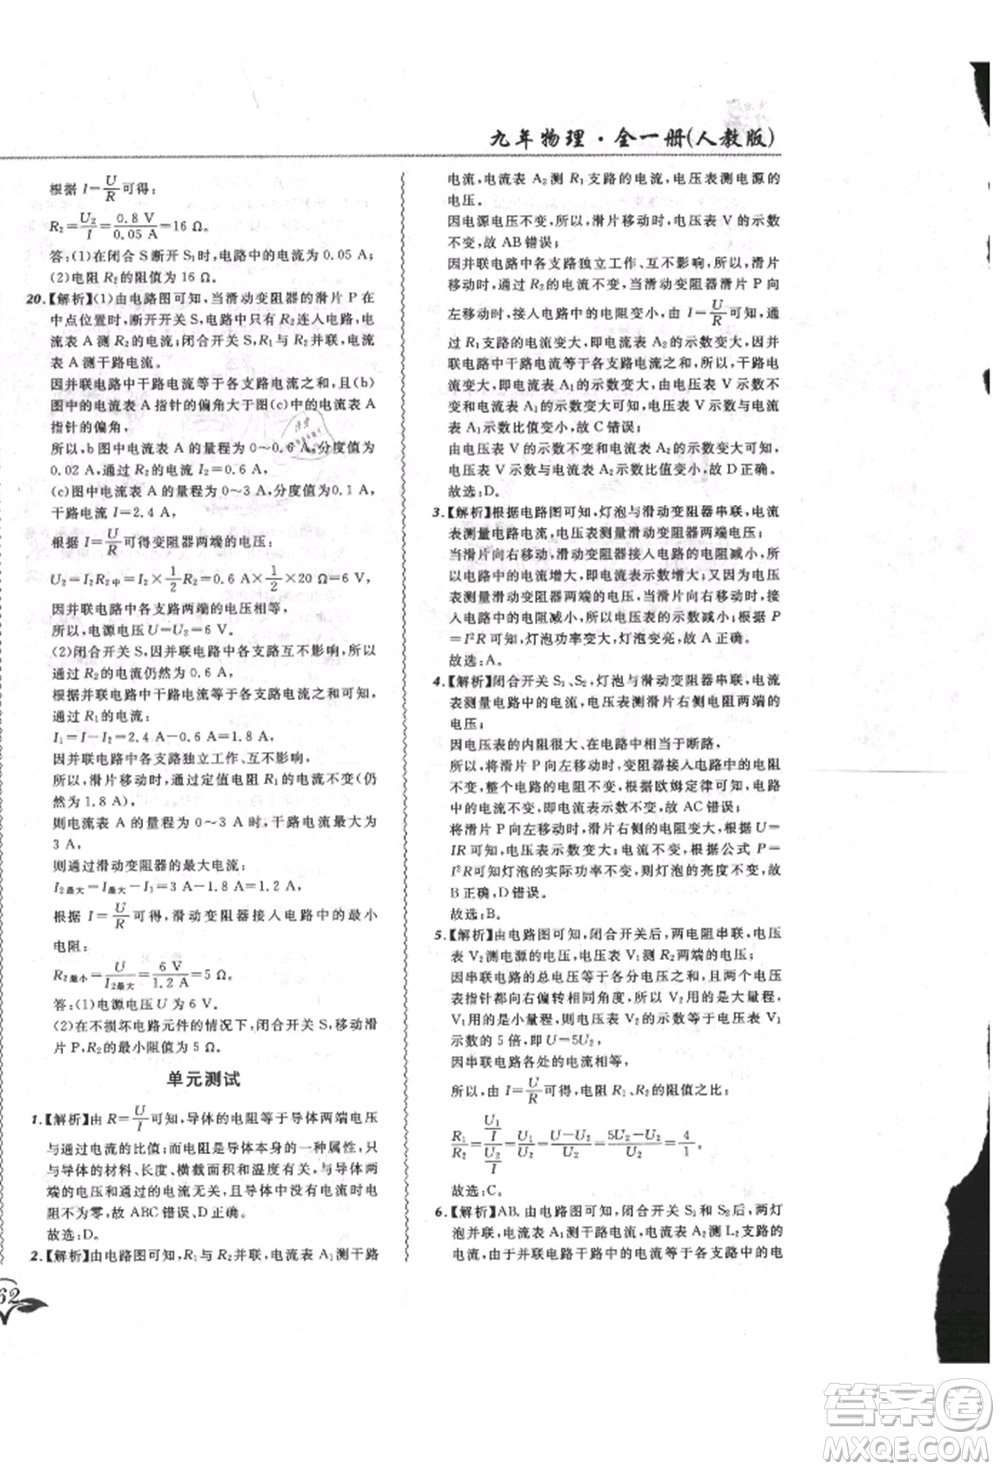 九年物理·全一册(人教版)
根据 I=U/R 可得:
R₂=U₂/I=0.8 V/0.05 A=16 Ω。
答:(1)在闭合 S 断开 S₁时,电路中的电流为 0.05 A;
(2)电阻 R₂的阻值为 16 Ω。
20.【解析】(1)由电路图可知,当滑动变阻器的滑片 P 在
中点位置时,断开开关 S,电路中只有 R₂连入电路,电
流表 A 测量 R₂的电流;闭合开关 S,R₁与 R₂并联,电流
表 A 测干路电流。
因并联电路中干路电流等于各支路电流之和,且(b)
图中的电流表 A 指针的偏角大于图(c)中的电流表 A
指针的偏角,
所以,b 图中电流表 A 的量程为 0~0.6 A,分度值为
0.02 A,通过 R₂的电流 I₂=0.6 A,
(c)图中电流表 A 的量程为 0~3 A,分度值为0.1 A,
干路电流 I=2.4 A,
根据 I=U/R 可得变阻器两端的电压:
U₂=I₂R₂中=I₂×1/2R₂=0.6 A×1/2×20 Ω=6 V,
因并联电路中各支路两端的电压相等,
所以,电源电压 U=U₂=6 V。
(2)闭合开关 S,因并联电路中各支路互不影响,则通
过 R₂的电流仍然为 0.6 A,
根据并联电路中干路电流等于各支路电流之和可知,
通过 R₁的电流:
I₁=I-I₂=2.4 A-0.6 A=1.8 A,
因并联电路中各支路独立工作、互不影响,
所以,滑片移动时,通过定值电阻 R₁的电流不变(仍
然为 1.8 A),
则电流表 A 的量程为 0~3 A,干路电流最大为
3 A,
则通过滑动变阻器的最大电流:
I₂最大=I最大-I₁=3 A-1.8 A=1.2 A,
根据 I=U/R 可得,滑动变阻器接入电路中的最小
电阻:
R₂最小=U/I₂最大=6 V/1.2 A=5 Ω。
答:(1)电源电压 U=6 V;
(2)在不损坏电路元件的情况下,闭合开关 S,移动滑
片 P,R₂的最小阻值为 5 Ω。
单元测试
1.【解析】由 R=U/I可知,导体的电阻等于导体两端电压
与通过电流的比值;而电阻是导体本身的一种属性,只
与导体的材料、长度、横截面积和温度有关,与导体两
端的电压和通过的电流无关,当导体中的电流为零时电
阻不为零,故 ABC 错误、D 正确。
故选:D。
2.【解析】由电路图可知,R₁与 R₂并联,电流表 A₁测干路
62
电流,电流表 A₂测 R₁支路的电流,电压表测电源的
电压。
因电源电压不变,所以,滑片移动时,电压表 V 的示数
不变,故 AB错误;
因并联电路中各支路独立工作、互不影响,
移动时,通过
所以,滑片 P 向
左移动时,接入电路中的电阻变小,由 I=U/R可知,通
过 R₁支路的电流变大,
因并联电路中干路电流等于各支路电流之和,所以,干路电
流变大,即电流表 A₁的示数变大,由电压表 V 的示数不
变和电流表 A₁的示数变大可知,
由电压表 V 的示数不变、电流表 A₁的示数变大可知,
电压表 V 示数与电流表 A₁示数比值变小,故 D 正确。
故选:D。
3.【解析】根据电路图可知,灯泡与滑动变阻器串联,电流
表测量电路电流,电压表测量滑动变阻器两端电压。
当滑片向右移动,滑动变阻器接入电路的电阻减小,所
以电流表示数增大,电压表示数减小;又因为滑片接
入电路中的电阻减小,电流表的示数变大,根据 P=
I²R 可知,灯泡功率变大,灯泡变亮,故 A 正确。
故选:A。
4.【解析】闭合开关 S₁、S₂,灯泡与滑动变阻器串联,电流
表测量电路中的电流,电压表测滑片右侧电阻两端的
电压,
因电压表的内阻很大、在电路中相当于断路,
所以,滑片 P 向左移动时,变阻器接入电路中的电阻
不变,整个电路的电阻不变,根据欧姆定律可知,电路
中的电流不变,即电流表示数不变,故 AC 错误;
将滑片 P向左移动时,右侧部分的电阻变大,根据 U=
IR可知,电压表示数变大;电流不变,根据公式 P=
I²R可知灯泡的实际功率不变,灯泡的亮度不变,故
B 正确,D 错误。
故选:B。
5.【解析】由电路图可知,闭合开关后,两电阻串联,电压
表 V₂测电源的电压,电压表 V₁测 R₁两端的电压。
因串联电路的总电压等于各分电压之和,且两只电压
表指针偏转角度相同,所以,V₂选的是大量程,
V₁选的是小量程,且 V₂的示数等于 V₁
示数的 5 倍,即 U=5U₂,
因串联电路各处的电流相等,
所以,由 I=U/R可得,电阻 R₁、R₂的阻值之比:
R₁/R₂=(U₁/I)/(U₂/I)=U₁/U₂=(U-U₂)/U₂=(5U₂-U₂)/U₂=4/1。
故选:C。
6.【解析】AB.由电路图可知,闭合开关 S₁和 S₂后,两灯
并联,电流表 A₁测干路电流,电流表 A₂测 L₂支路的电
流,由于并联电路干路中的电流等于各支路中的电
答案圈
MXQE.COM